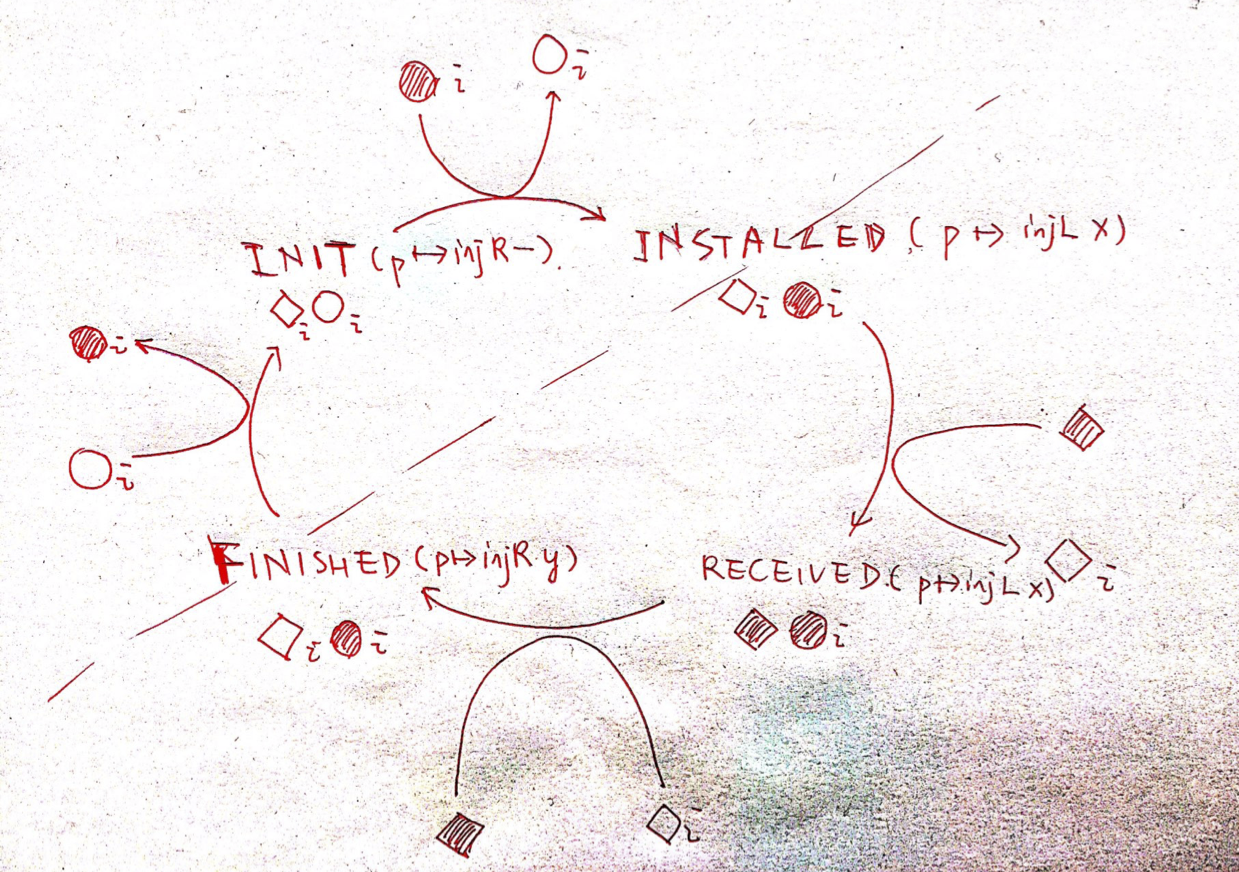 i
i
INIT (p ↦ injR –)
INSTALLED (p ↦ injL x)
i i
i i
i
i
FINISHED (p ↦ injR y)
RECEIVED (p ↦ injL x)
i
i i
i
i